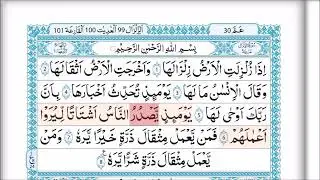 الزلزال 99 العديت 100 القارعة 101
عمّ 30
بِسْمِ اللَّهِ الرَّحْمَٰنِ الرَّحِيمِ
إِذَا زُلْزِلَتِ الْأَرْضُ زِلْزَالَهَا ۝ وَأَخْرَجَتِ الْأَرْضُ أَثْقَالَهَا ۝
وَقَالَ الْإِنْسٰنُ مَا لَهَا ۝ يَوْمَئِذٍ تُحَدِّثُ أَخْبَارَهَا ۝ بِأَنَّ
رَبَّكَ أَوْحَىٰ لَهَا ۝ يَوْمَئِذٍ يَصْدُرُ النَّاسُ أَشْتَاتًا لِيُرَوْا
أَعْمٰلَهُمْ ۝ فَمَنْ يَعْمَلْ مِثْقَالَ ذَرَّةٍ خَيْرًا يَرَهُ ۝ وَمَنْ
يَعْمَلْ مِثْقَالَ ذَرَّةٍ شَرًّا يَرَهُ ۝